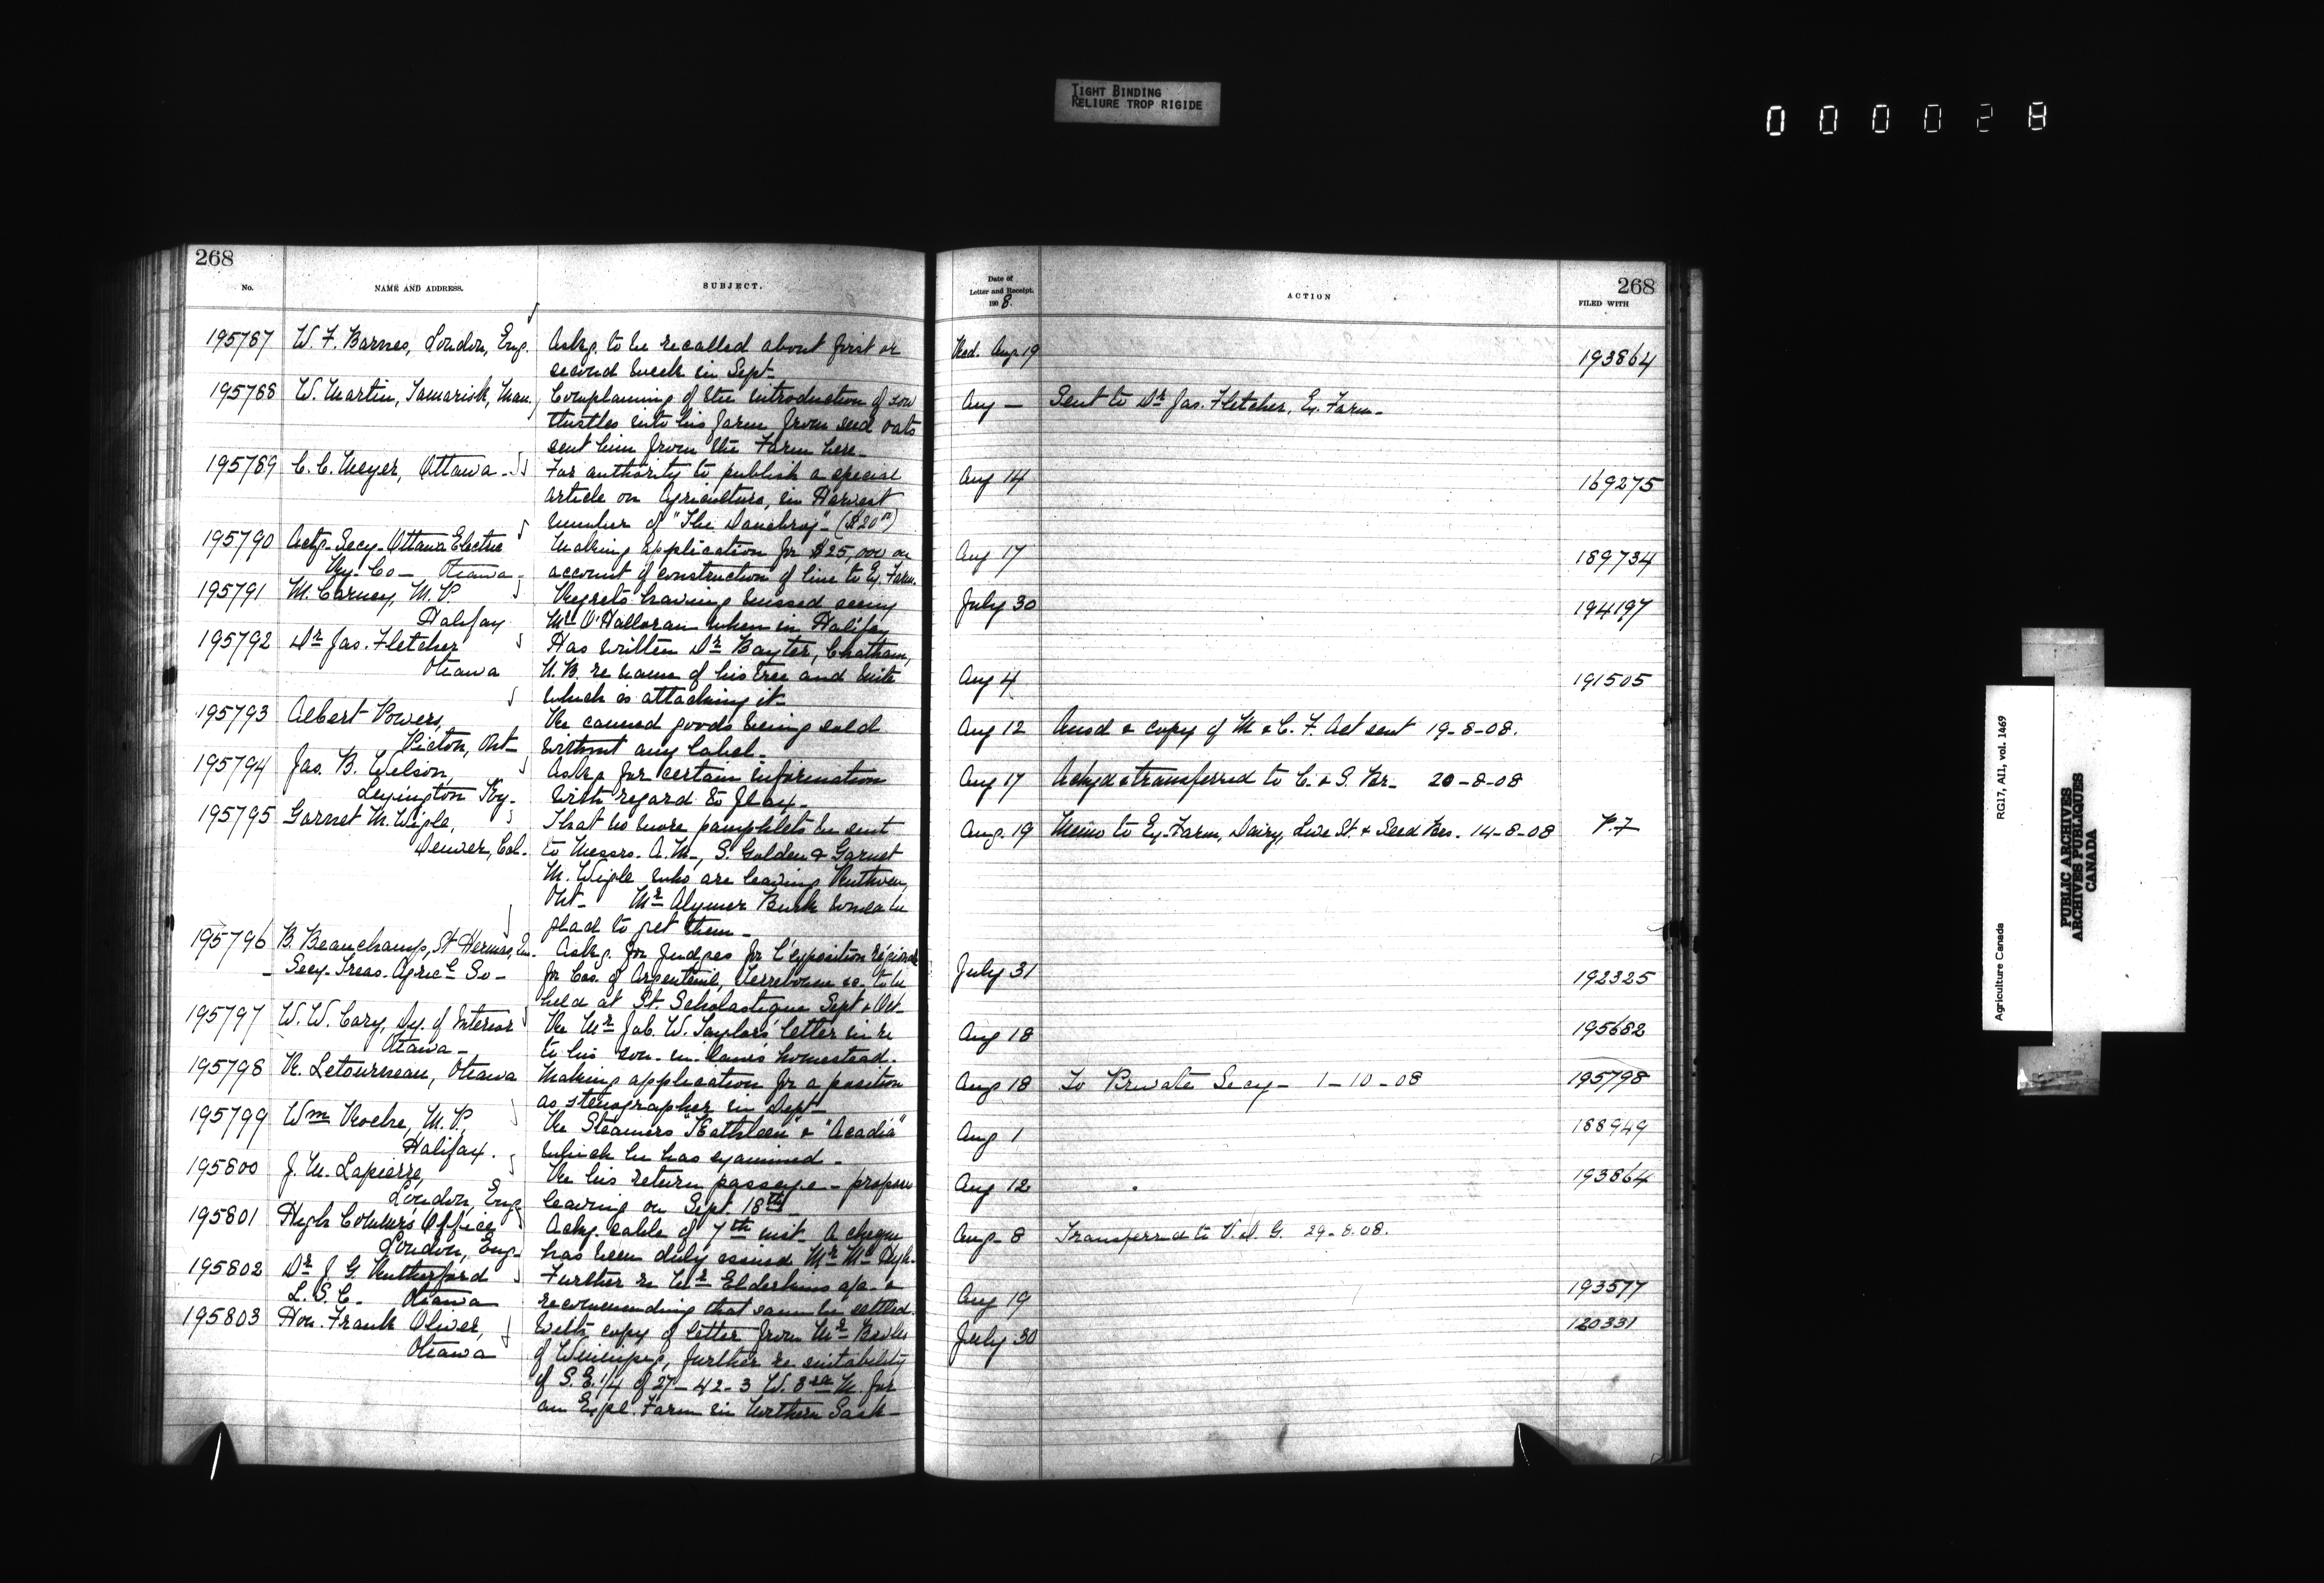 TIGHT BINDING
RELIURE TROP RIGIDE
000028
268
No.
NAME AND ADDRESS.
SUBJECT.
195787 W. F. Barnes, London, Eng. Askg. to be recalled about first or
second week in Sept.
195788 W. Martin, Tamarisk, Man. Complaining of the introduction of sow
thistles into his farm from seed oats
sent him from the Farm here.
195789 C. C. Meyer, Ottawa. For authority to publish a special
article on Agriculture, in Harvest
number of "The Danebrog" ($20.00)
195790 Actg. Secy. Ottawa Electric Making application for $25,000 on
Ry. Co. Ottawa. account of construction of line to Ex. Farm.
195791 M. Carney, M. P. Regrets having missed seeing
Halifax Mr. O'Halloran when in Halifax
195792 Dr. Jas. Fletcher Has written Dr. Baxter, Chatham,
Ottawa N. B. re name of his tree and mite
which is attacking it.
195793 Albert Powers, Re canned goods being sold
Picton, Ont. without any label.
195794 Jas. B. Wilson, Asks for certain information
Lexington Ky. with regard to flax.
195795 Garnet M. Wigle, That no more pamphlets be sent
Denver, Col. to Messrs. A. M., S. Golden & Garnet
M. Wigle who are leaving Ruthven,
Ont. Mr. Alymer Burk would be
glad to get them.
195796 B. Beauchamp, St Hermas, Askg. for Judges for l'exposition régionale
Secy. Treas. Agricl. So. for Cos. of Argenteuil, Terrebonne &c. to be
held at St. Scholastique Sept & Oct.
195797 W. W. Cory, Dy. of Interior Re Mr. Jab. W. Taylor's letter in re
Ottawa. to his son-in-law's homestead.
195798 R. Letourneau, Ottawa Making application for a position
as stenographer in Dept.
195799 Wm. Roche, M. P., Re Steamers "Kathleen" & "Acadia"
Halifax. which he has examined.
195800 J. M. Lapierre, Re his return passage - proposes
London, Eng. leaving on Sept. 18th
195801 High Commrs Office Ackg. cable of 7th inst. A cheque
London, Eng. has been duly issued Mr.
195802 Dr. J. G. Rutherford Further re Mr. Elderkins a/c. &
L. S. C. Ottawa recommending that same be settled.
195803 Hon. Frank Oliver, With copy of letter from Mr.
Ottawa of Winnipeg, further re suitability
of S. E. 1/4 of 27-42-3 W. 3rd M for
an Expl. Farm in Northern Sask.
Date of
Letter and Receipt.
1908.
ACTION
268
FILED WITH
Wed. Aug. 19 193864
Aug — Sent to Dr. Jas. Fletcher, Ex. Farm.
Aug 14 169275
Aug 17 189734
July 30 194197
Aug 4 191505
Aug 12 Ansd & copy of M & C. F. Act sent 19-8-08.
Aug 17 Ackgd & transferred to C. & S. Br. 20-8-08
Aug. 19 Memo to Ex. Farm, Dairy, Live St. & Seed Brs. 14-8-08 P.F
July 31 192325
Aug 18 195682
Aug 18 To Private Secy. 1-10-08 195798
Aug 1 188949
Aug 12 193864
Aug. 8 Transferred to V. D. G. 29.8.08.
Aug 19 193577
July 30 120331
Agriculture Canada
RG17, AI1, vol. 1469
PUBLIC ARCHIVES
ARCHIVES PUBLIQUES
CANADA